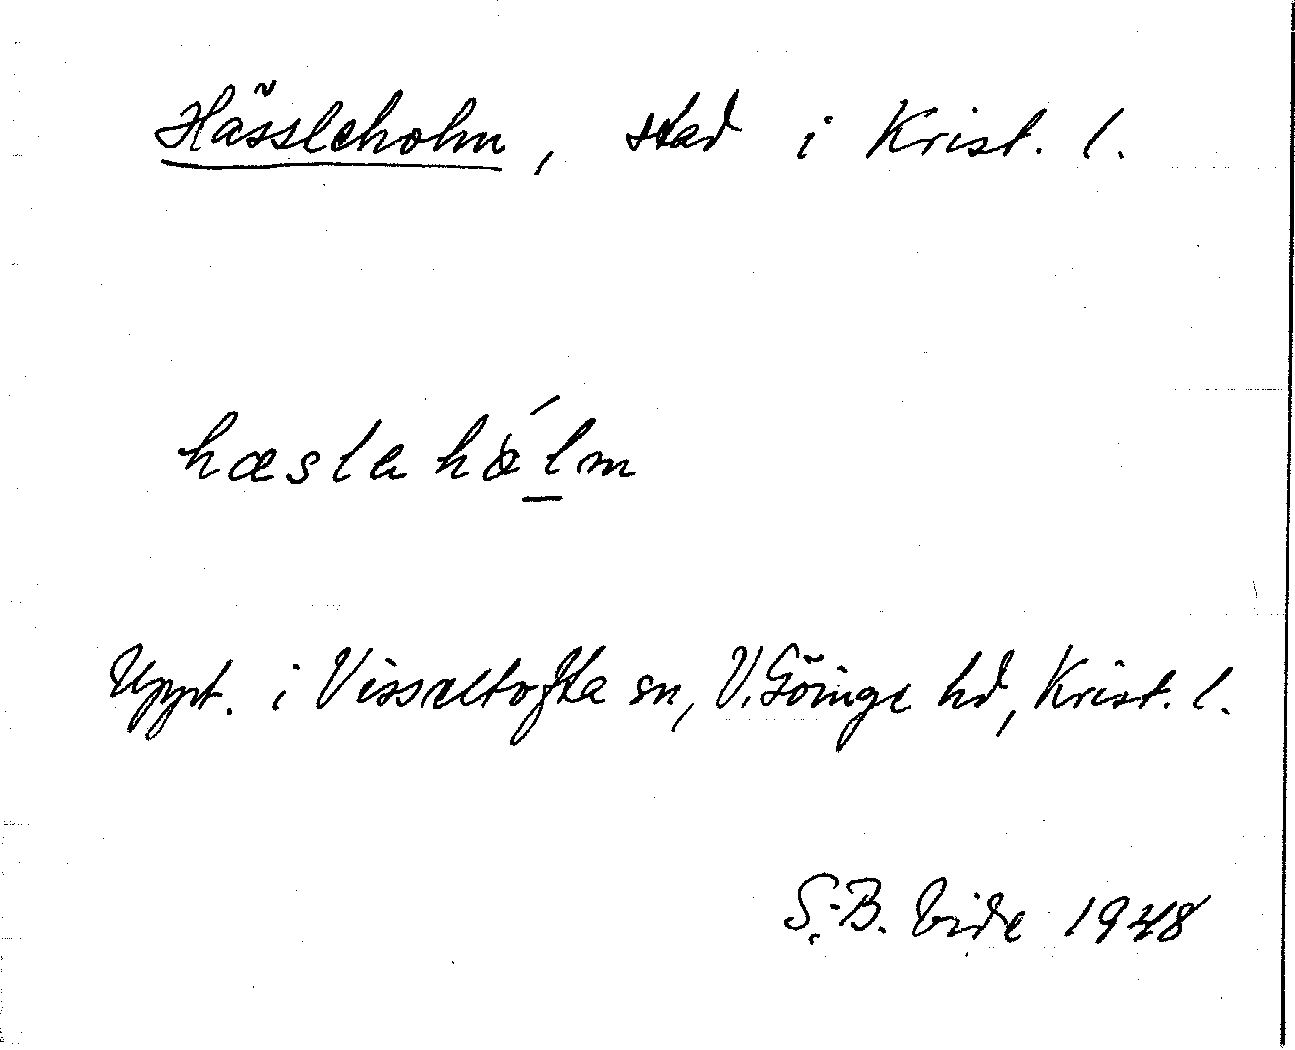 Hässleholm, stad i Krist. l.
hæslahål̲m
Uppt. i Visseltofta sn, V. Göinge hd, Krist. l.
S.-B. Vide 1948